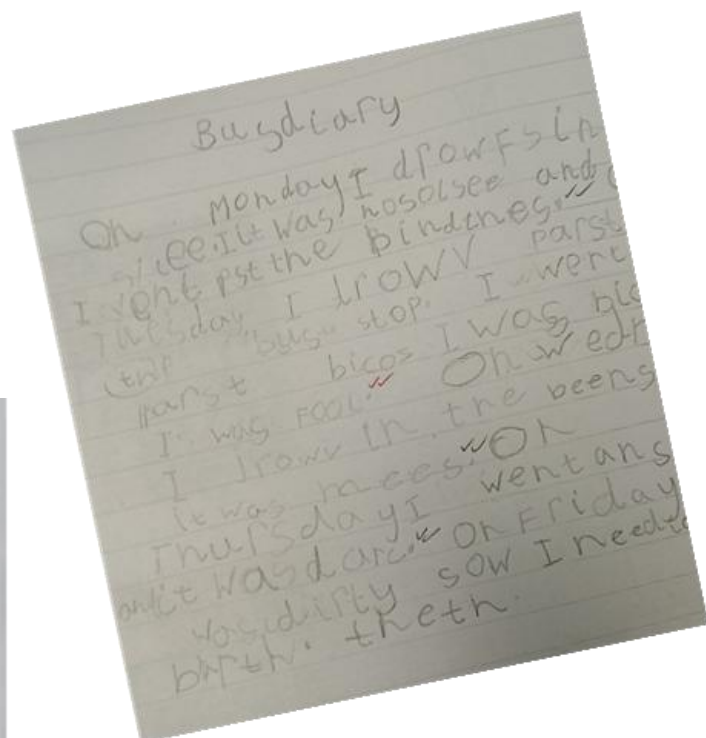 Busdiary
On Monday I drow Fsin
slee. It was nosolsee and
I went pst the bindenes.
Tuesday I drowv parst
the "bus" stop. I went
parst bicos I was
I was Fool. On wedn
I drowv in the beens
it was mees. On
Thursday I went ans
anit was darc. On Friday
was dirty sow I need
birth. theth.